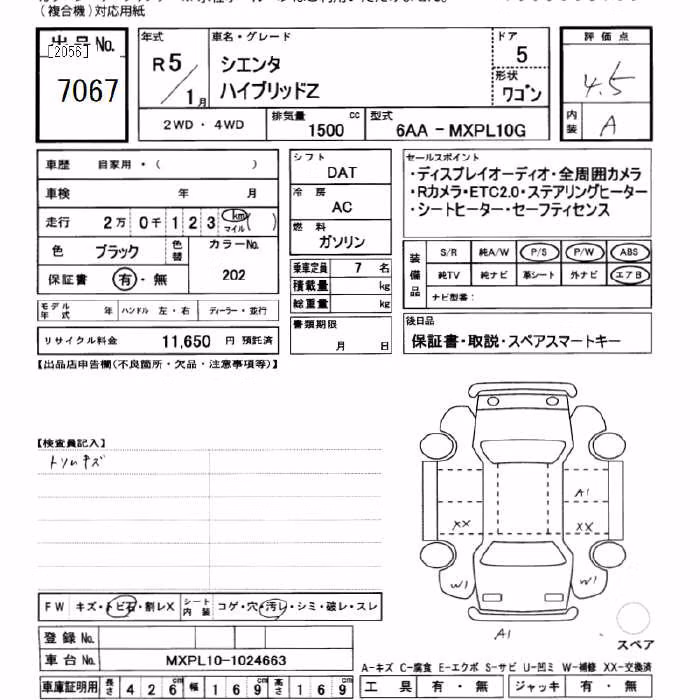 (複合機)対応用紙
出品No.
[2056]
7067
年式
R5/1月
車名・グレード
シエンタ
ハイブリッドZ
ドア
5
形状
ワゴン
評価点
4.5
内装
A
2WD・4WD
排気量
1500 cc
型式
6AA-MXPL10G
車歴 自家用・( )
車検 年 月
走行 2万 0千 1 2 3 km マイル ( )
色 ブラック
色替
カラーNo.
202
保証書 有・無
モデル年式 年
ハンドル 左・右
ディーラー・並行
リサイクル料金 11,650 円 預託済
シフト
DAT
冷房
AC
燃料
ガソリン
乗車定員 7 名
積載量 kg
総重量 kg
書類期限
月 日
セールスポイント
・ディスプレイオーディオ・全周囲カメラ
・Rカメラ・ETC2.0・ステアリングヒーター
・シートヒーター・セーフティセンス
装備品
S/R 純A/W P/S P/W ABS
純TV 純ナビ 革シート 外ナビ エアB
ナビ型番:
後日品
保証書・取説・スペアスマートキー
【出品店申告欄(不良箇所・欠品・注意事項等)】
【検査員記入】
トソレキズ
A1
XX
XX
W1
W1
A1
スペア
FW キズ・トビ石・割レX
シート内装 コゲ・穴・汚レ・シミ・破レ・スレ
登録No.
車台No. MXPL10-1024663
車庫証明用 長さ 426cm 幅 169cm 高さ 169cm
A-キズ C-腐食 E-エクボ S-サビ U-凹ミ W-補修 XX-交換済
工具 有・無
ジャッキ 有・無